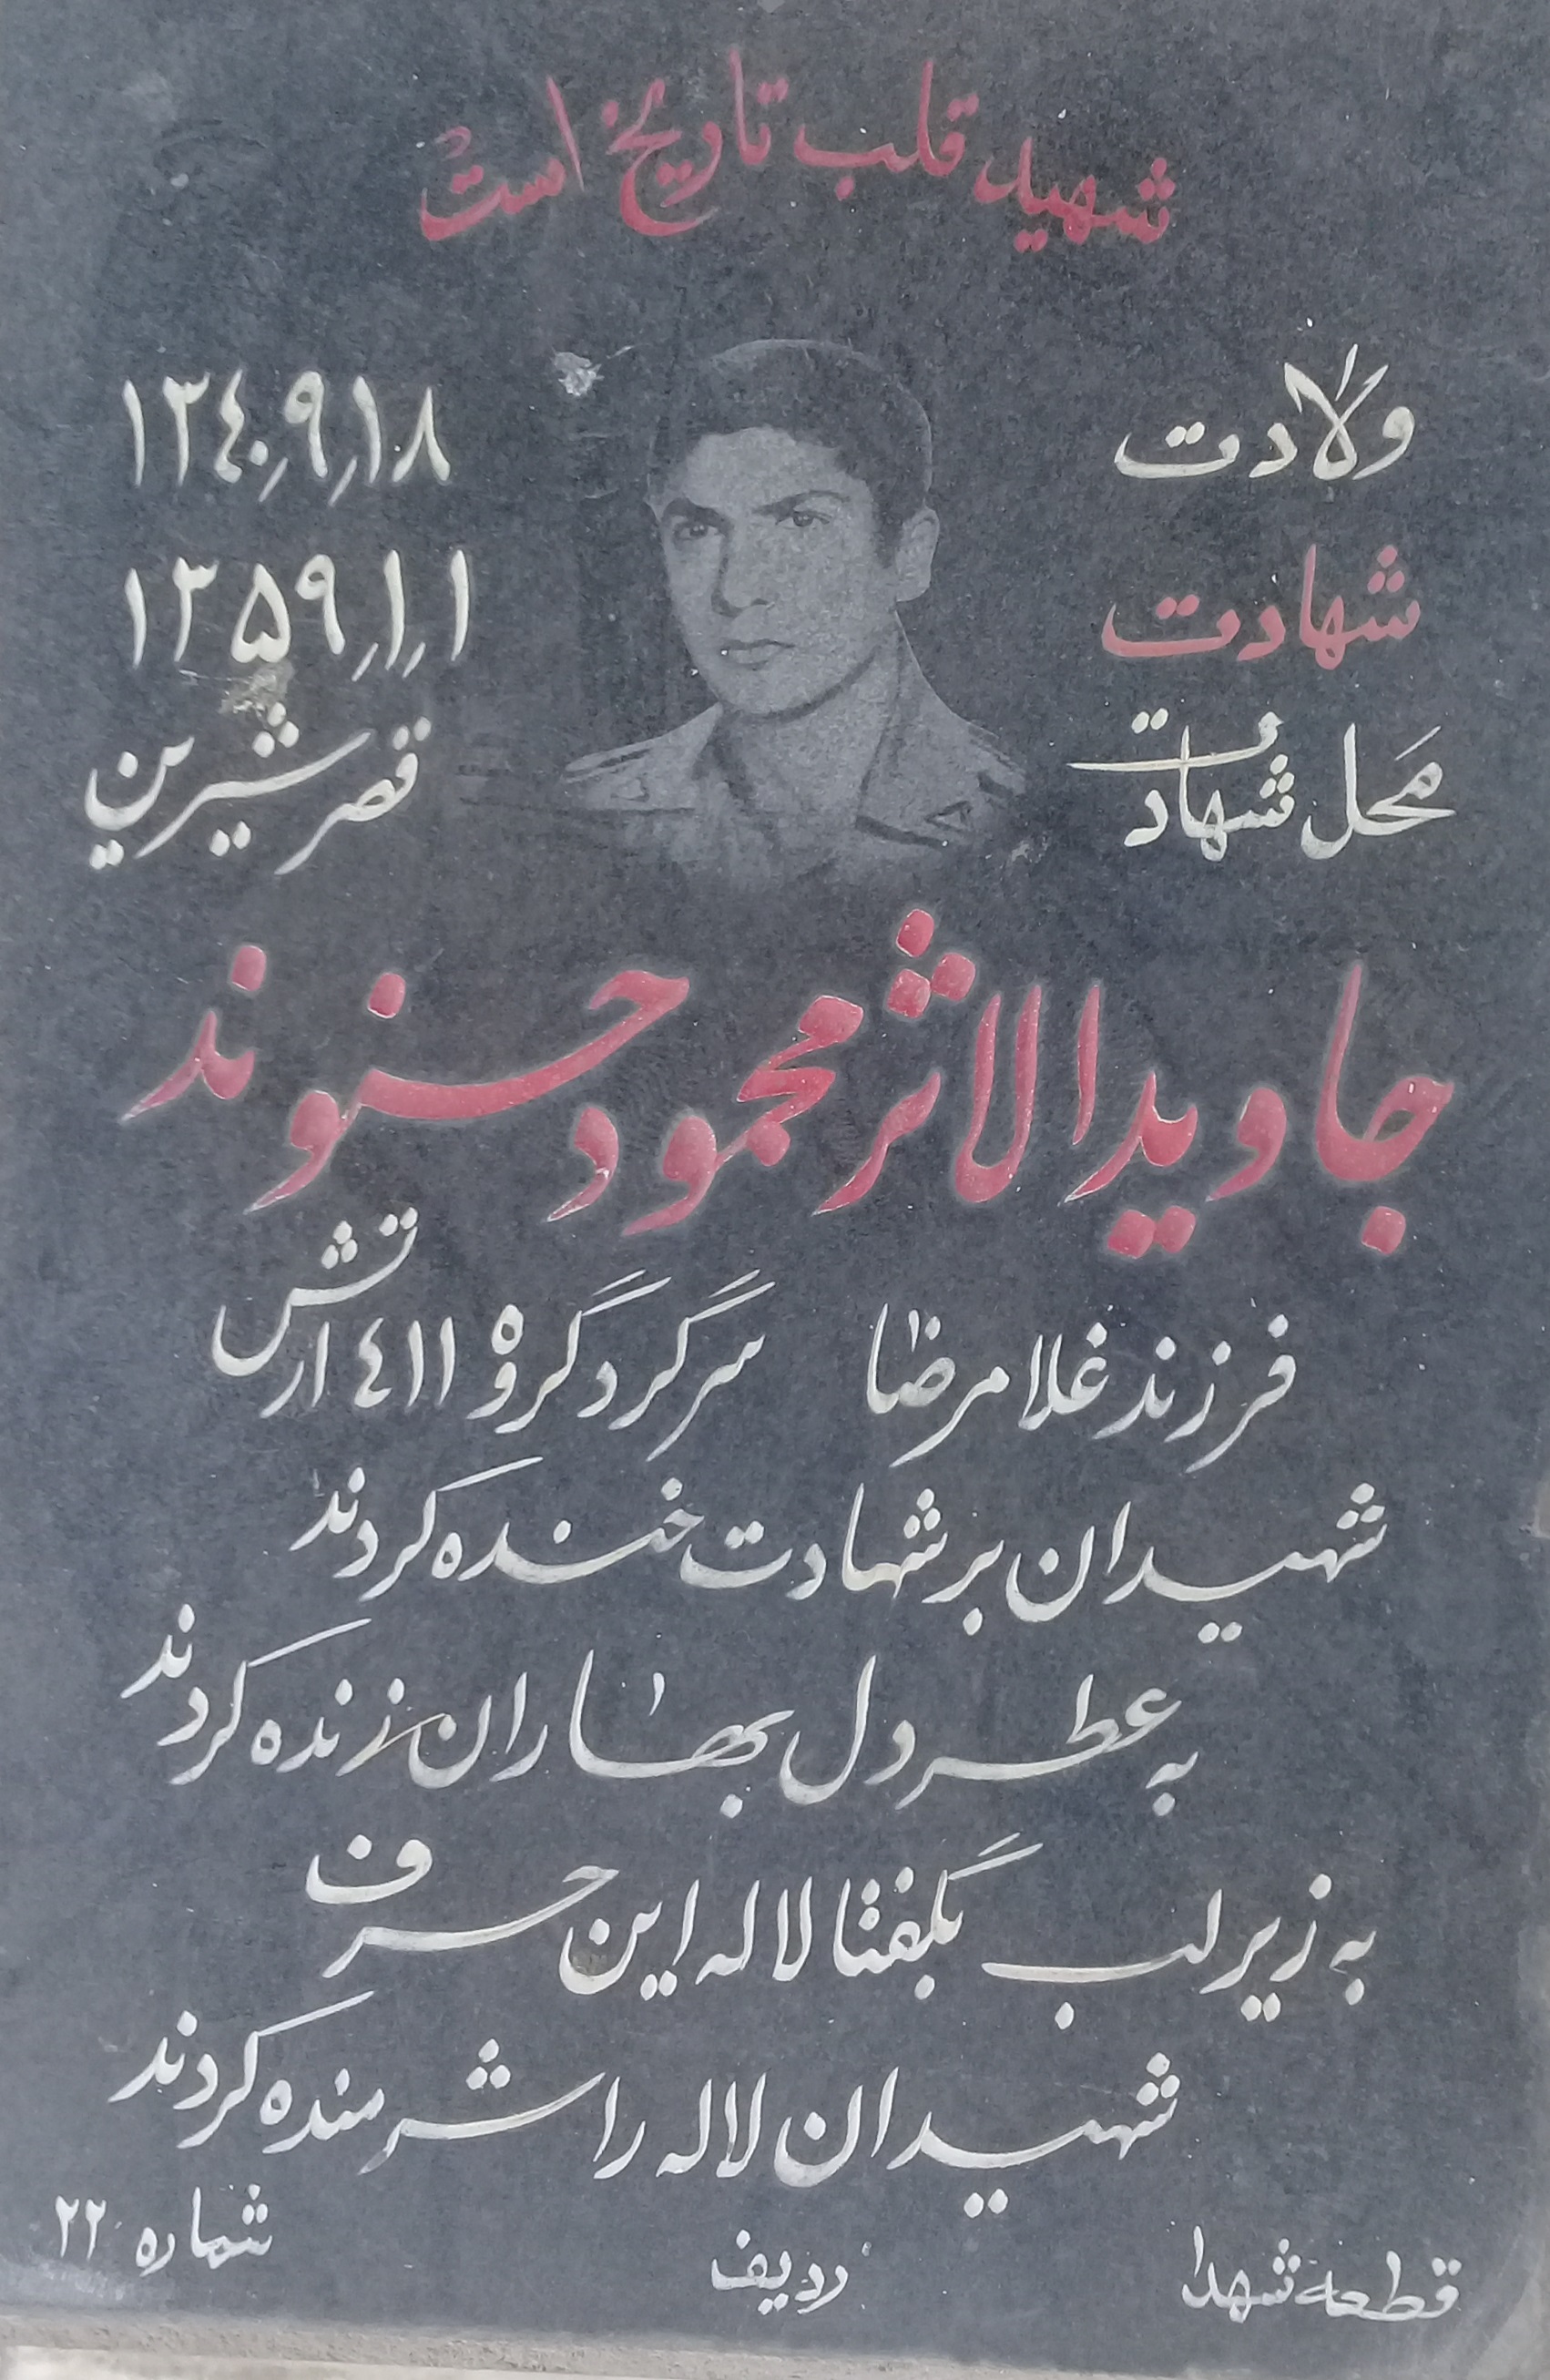 شهید قلب تاریخ است
ولادت ۱۳۴۰٫۹٫۱۸
شهادت ۱۳۵۹٫۱٫۱
محل شهادت قصرشیرین
جاویدالاثر محمود حسنوند
فرزند غلامرضا سرگرد گروه ۴۱۱ ارتش
شهیدان بر شهادت خنده کردند
به عطر دل بهاران زنده کردند
به زیر لب بگفتا لاله این حرف
شهیدان لاله را شرمنده کردند
قطعه شهدا ردیف شماره ۲۲